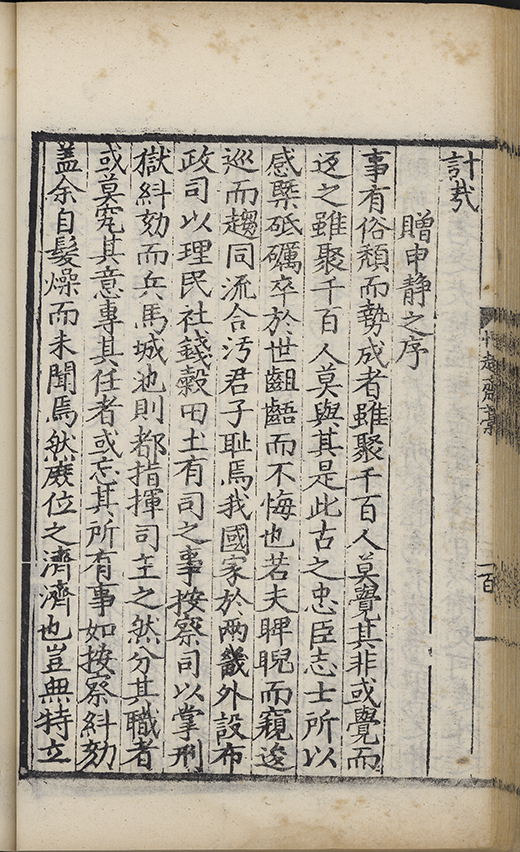 齋藁
一百
計哉
贈申静之序
事有俗頽而勢成者雖聚千百人莫覺其非或覺而
迓之雖聚千百人莫與其是此古之忠臣志士所以
感槩砥礪卒於世齟齬而不悔也若夫睥睨而窺逡
巡而趨同流合汚君子耻焉我國家於两畿外設布
政司以理民社錢穀田土有司之事按察司以掌刑
獄紏劾而兵馬城池則都指揮司主之然分其職者
或莫究其意專其任者或忘其所有事如按察紏劾
盖余自髮燥而未聞焉然厥位之濟濟也豈無特立